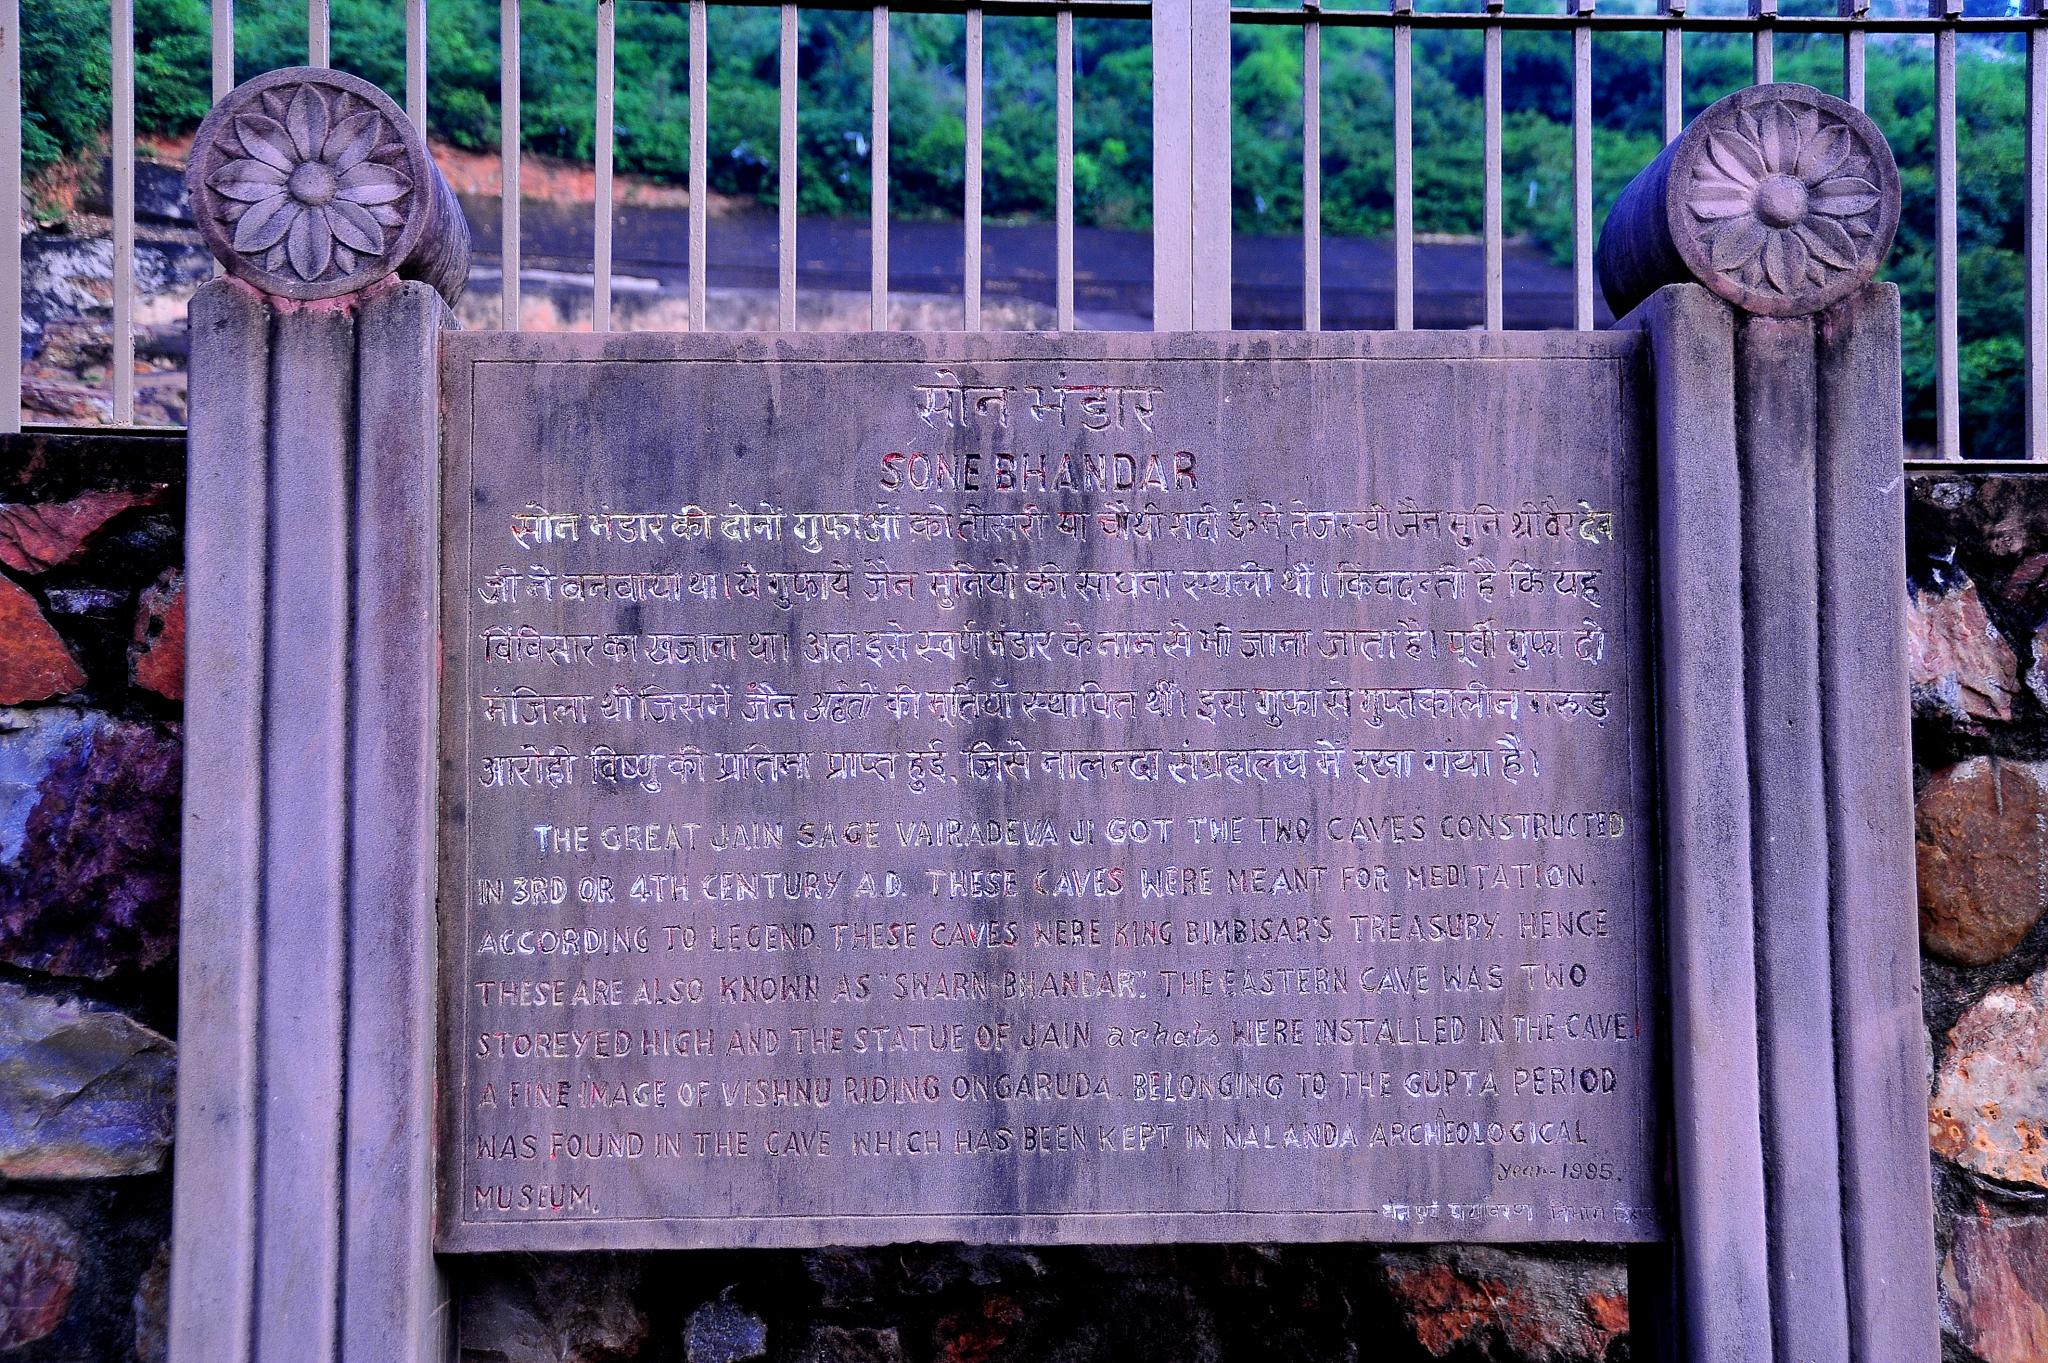 सोन भंडार
SONE BHANDAR
सोन भंडार की दोनों गुफाओं को तीसरी या चौथी शदी ई॰ में तेजस्वी जैन मुनि श्री वैरदेव
जी ने बनवाया था। ये गुफायें जैन मुनियों की साधना स्थली थीं। किंवदन्ती है कि यह
बिंबिसार का खजाना था। अतः इसे स्वर्ण भंडार के नाम से भी जाना जाता है। पूर्वी गुफा दो
मंजिला थी जिसमें जैन अर्हतों की मूर्तियाँ स्थापित थीं। इस गुफा से गुप्तकालीन गरूड़
आरोही विष्णु की प्रतिमा प्राप्त हुई, जिसे नालन्दा संग्रहालय में रखा गया है।
THE GREAT JAIN SAGE VAIRADEVA JI GOT THE TWO CAVES CONSTRUCTED
IN 3RD OR 4TH CENTURY A.D. THESE CAVES WERE MEANT FOR MEDITATION.
ACCORDING TO LEGEND, THESE CAVES WERE KING BIMBISAR'S TREASURY. HENCE
THESE ARE ALSO KNOWN AS "SWARN BHANDAR". THE EASTERN CAVE WAS TWO
STOREYED HIGH AND THE STATUE OF JAIN arhats WERE INSTALLED IN THE CAVE.
A FINE IMAGE OF VISHNU RIDING ON GARUDA. BELONGING TO THE GUPTA PERIOD
WAS FOUND IN THE CAVE WHICH HAS BEEN KEPT IN NALANDA ARCHAEOLOGICAL
MUSEUM.
year-1995.
वन एवं पर्यावरण विभाग